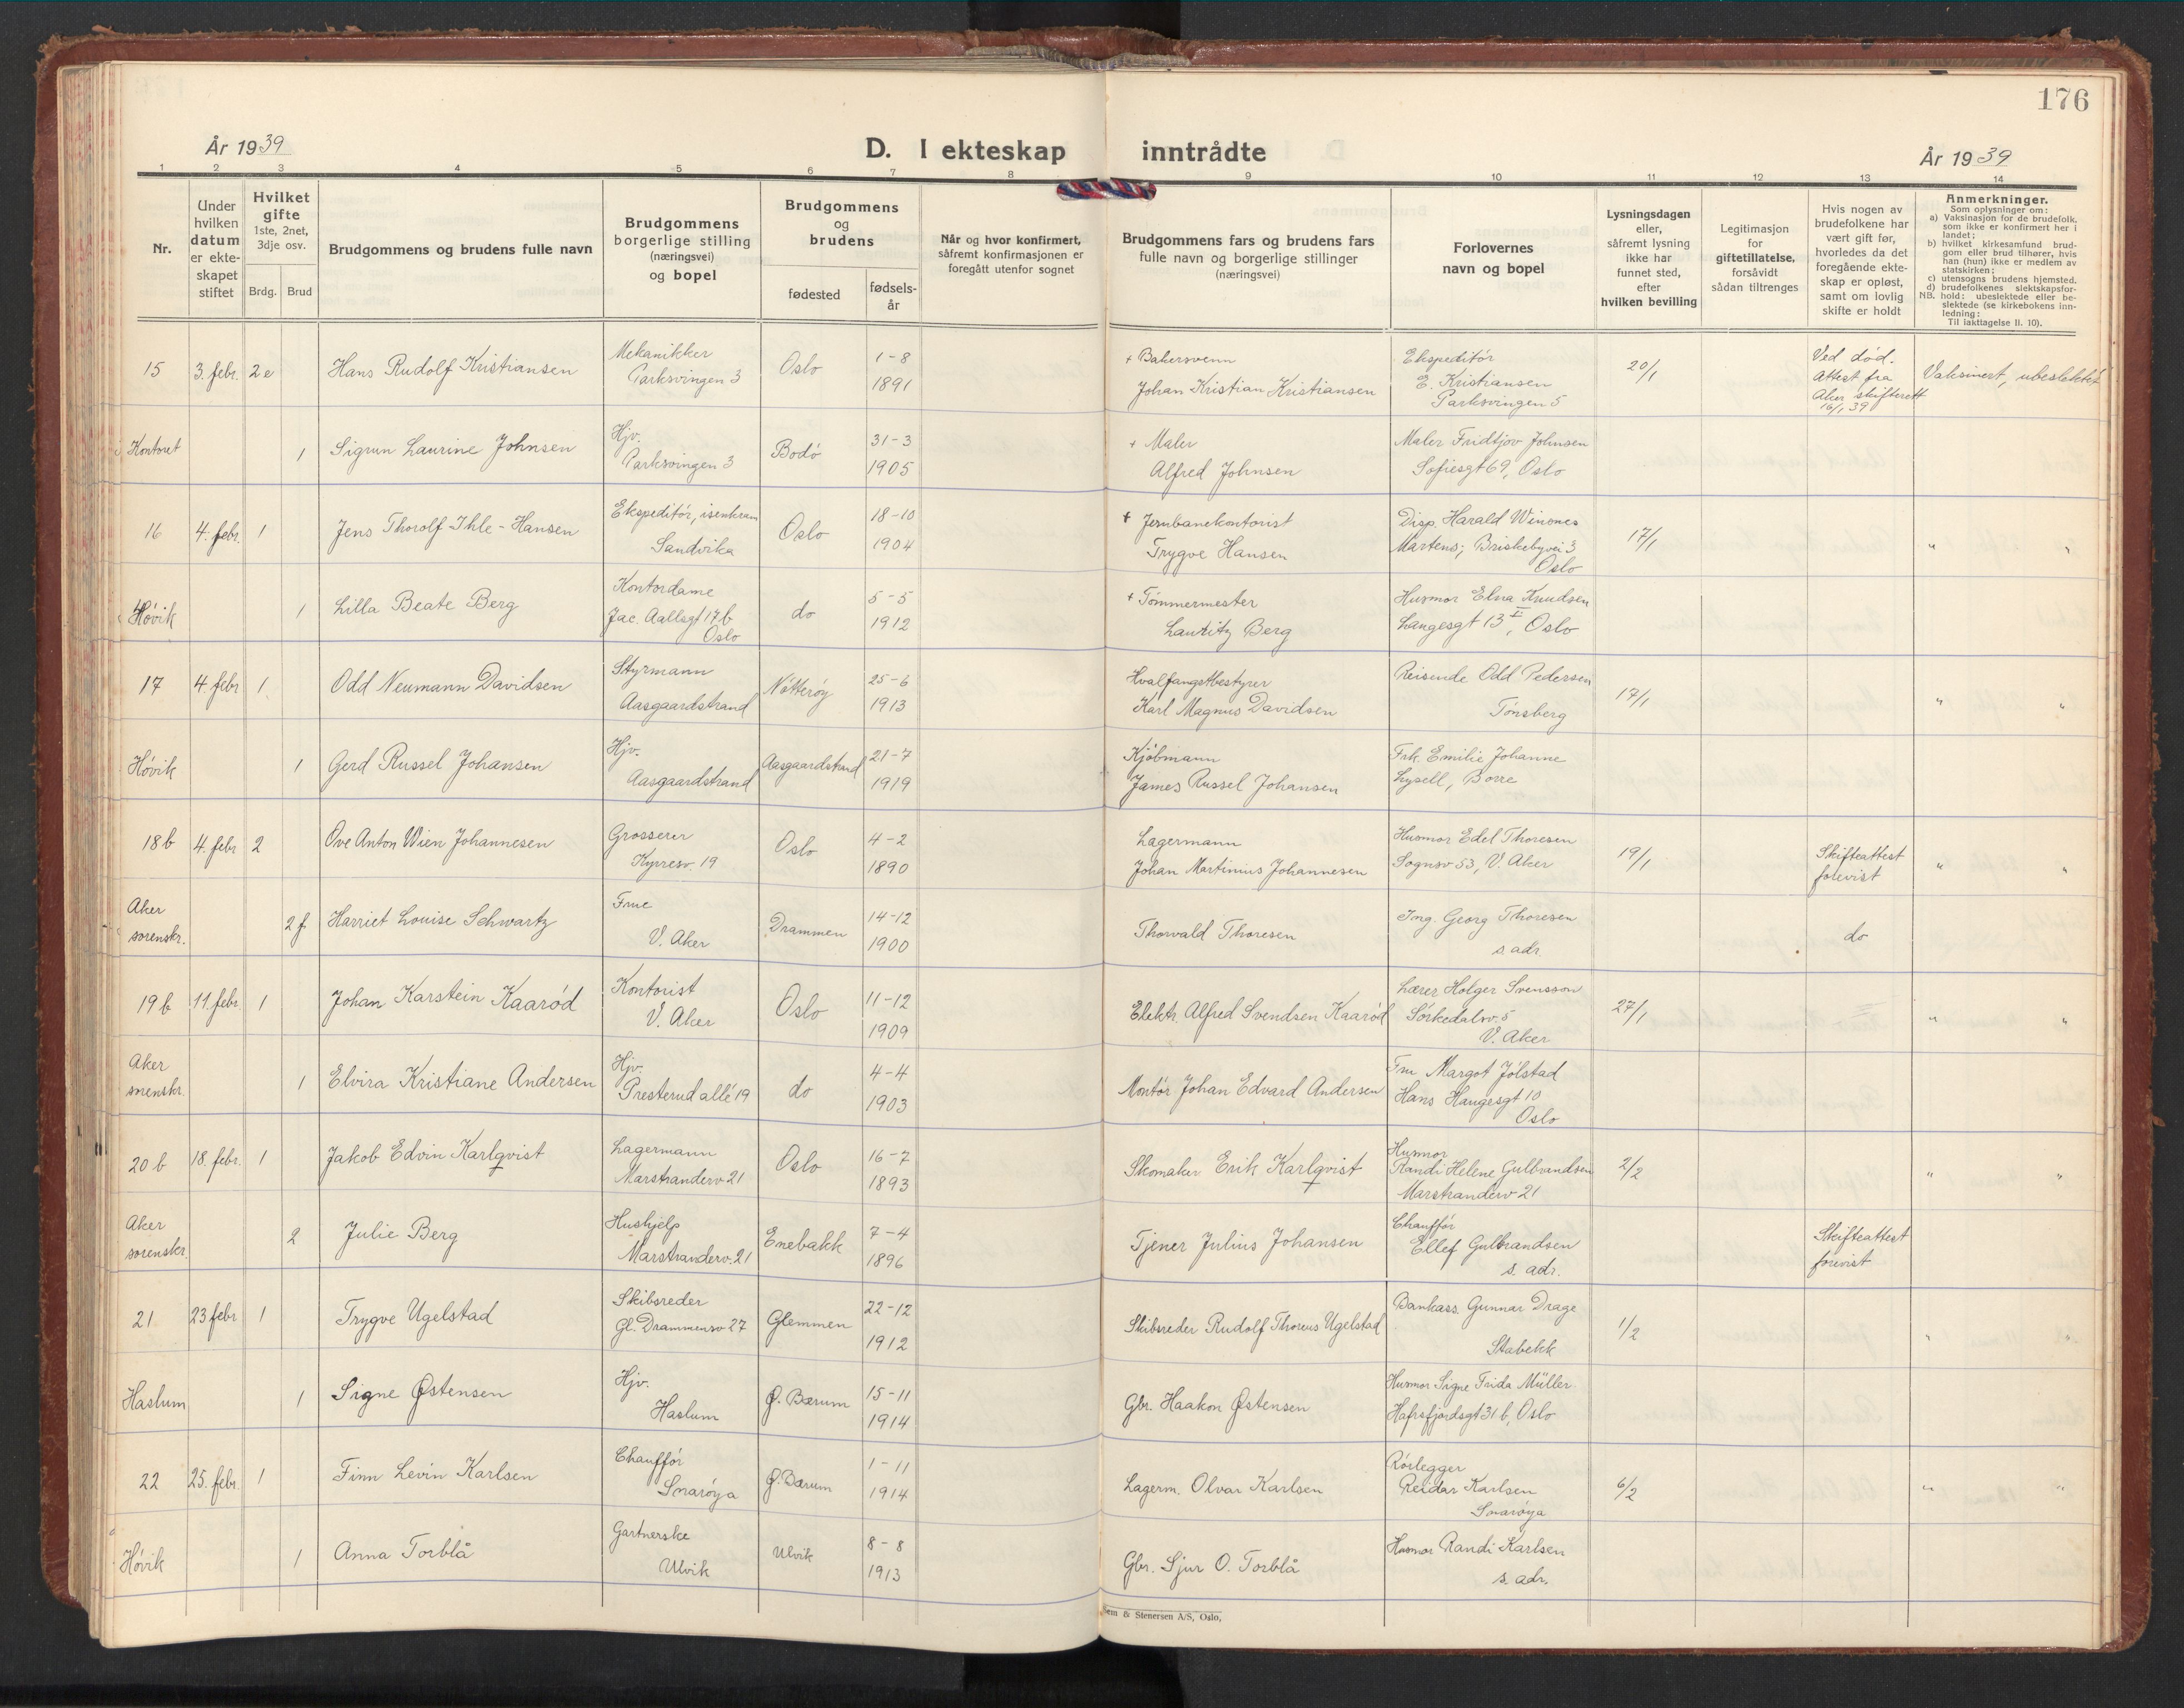 176
År 1939
D. I ekteskap inntrådte
År 1939
1 2 3 4 5 6 7 8 9 10 11 12 13 14
Nr.
Under hvilken datum er ekte-skapet stiftet
Hvilket gifte 1ste, 2net, 3dje osv.
Brdg. Brud
Brudgommens og brudens fulle navn
Brudgommens borgerlige stilling (næringsvei) og bopel
Brudgommens og brudens
fødested
fødsels-år
Når og hvor konfirmert, såfremt konfirmasjonen er foregått utenfor sognet
Brudgommens fars og brudens fars fulle navn og borgerlige stillinger (næringsvei)
Forlovernes navn og bopel
Lysningsdagen eller, såfremt lysning ikke har funnet sted, efter hvilken bevilling
Legitimasjon for giftetillatelse, forsåvidt sådan tiltrenges
Hvis nogen av brudefolkene har vært gift før, hvorledes da det foregående ekte-skap er opløst, samt om lovlig skifte er holdt
Anmerkninger.
Som oplysninger om:
a) Vaksinasjon for de brudefolk, som ikke er konfirmert her i landet;
b) hvilket kirkesamfund brud-gom eller brud tilhører, hvis han (hun) ikke er medlem av statskirken;
c) utensogns brudens hjemsted.
d) brudefolkenes slektskapsfor-hold: ubeslektede eller be-slektede (se kirkebokens inn-ledning:
NB. Til iakttagelse II. 10).
15 3. febr. 2e Hans Rudolf Kristiansen Mekanikker Parksvingen 3 Oslo 1-8 1891 + Bakersvenn Johan Kristian Kristiansen Ekspeditör E. Kristiansen Parksvingen 5 20/1 Ved död. Attest fra Aker skifterett 16/1 39 Vaksinert, ubeslektet
Kontoret 1 Sigrun Laurine Johnsen Hjv. Parksvingen 3 Bodö 31-3 1905 + Maler Alfred Johnsen Maler Fridtjov Johnsen Sofiesgt 69, Oslo
16 4. febr. 1 Jens Thorolf Ihle-Hansen Ekspeditör, isenkram Sandvika Oslo 18-10 1904 + Jernbanekontorist Trygve Hansen Disp. Harald Winones Martens, Briskebyvei 3 Oslo 17/1 " "
Hövik 1 Lilla Beate Berg Kontordame Jac. Aallsgt 17b Oslo do 5-5 1912 + Tömmermester Lauritz Berg Husmor Elna Knudsen Langesgt 13 II, Oslo
17 4. febr 1. Odd Neumann Davidsen Styrmann Aasgaardstrand Nötteröy 25-6 1913 Hvalfangstbestyrer Karl Magnus Davidsen Reisende Odd Pedersen Tönsberg 17/1 " "
Hövik 1 Gerd Russel Johansen Hjv. Aasgaardstrand Aasgaardstrand 21-7 1919 Kjöbmann James Russel Johansen Frk. Emilie Johanne Lysell, Borre
18b 4. febr 2 Ove Anton Wien Johannesen Grosserer Kypresv. 19 Oslo 4-2 1890 Lagermann Johan Martinius Johannesen Husmor Edel Thoresen Sognsv 53, V. Aker 19/1 Skifteattest forevist " "
Aker sorenskr. 2 f Harriet Louise Schwartz Frue V. Aker Drammen 14-12 1900 Thorvald Thoresen Ing. Georg Thoresen s. adr. do
19 b 11. febr. 1 Johan Karstein Kaaröd Kontorist V. Aker Oslo 11-12 1909 Elektr. Alfred Svendsen Kaaröd Lærer Holger Svensson Sörkedalsv. 5 V. Aker 27/1 " "
Aker sorenskr. 1 Elvira Kristiane Andersen Hjv. Presterud allé 19 do 4-4 1903 Montör Johan Edvard Andersen Fru Margot Jölstad Hans Haugesgt 10 Oslo
20 b 18. febr. 1 Jakob Edvin Karlqvist Lagermann Marstranderv 21 Oslo 16-7 1893 Skomaker Erik Karlqvist Husmor Randi Helene Gulbrandsen Marstranderv 21 2/2 " "
Aker sorenskr. 2 Julie Berg Hushjelp Marstranderv. 21 Enebakk 7-4 1896 Tjener Julius Johansen Chafför Ellef Gulbrandsen s. adr. Skifteattest forevist
21 23 febr 1 Trygve Ugelstad Skibsreder Gl. Drammensv 27 Glemmen 22-12 1912 Skibsreder Rudolf Thoreus Ugelstad Bankass. Gunnar Drage Stabekk 1/2 " "
Haslum 1 Signe Østensen Hjv. Haslum Ø. Bærum 15-11 1914 Gbr. Haakon Østensen Husmor Signe Frida Müller Hafrsfjordsgt 31 b, Oslo
22 25. febr. 1 Finn Levin Karlsen Chafför Snaröya Ø. Bærum 1-11 1914 Lagerm. Olvar Karlsen Rörlegger Reidar Karlsen Snaröya 6/2 " "
Hövik 1 Anna Torblå Gartnerske Ulvik Ulvik 8-8 1913 Gbr. Sjur O. Torblå Husmor Randi Karlsen s. adr.
Sem & Stenersen A/S, Oslo,